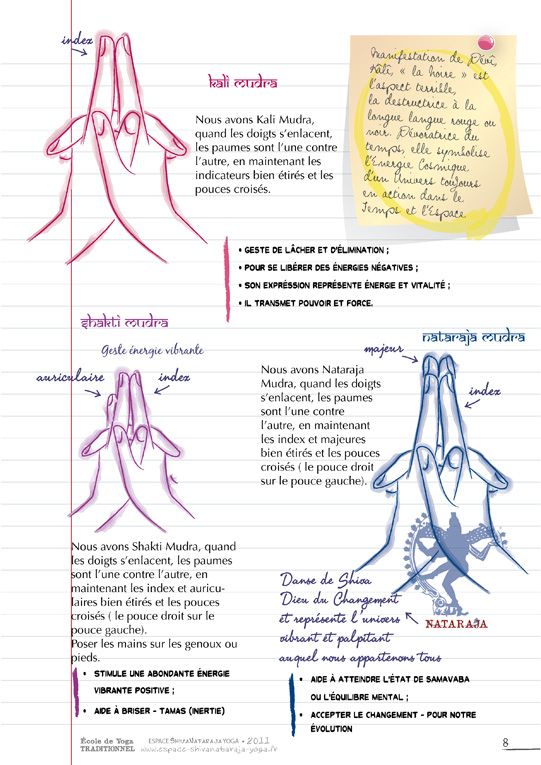 index
KALI MUDRA
Nous avons Kali Mudra,
quand les doigts s'enlacent,
les paumes sont l'une contre
l'autre, en maintenant les
indicateurs bien étirés et les
pouces croisés.
Manifestation de Dévî,
Kâlî, « la noire » est
l'aspect terrible,
la destructrice à la
longue langue rouge ou
noir. Dévoratrice du
temps, elle symbolise
l'Énergie Cosmique
d'un Univers toujours
en action dans le
Temps et l'Espace
• GESTE DE LÂCHER ET D'ÉLIMINATION ;
• POUR SE LIBÉRER DES ÉNERGIES NÉGATIVES ;
• SON EXPRÉSSION REPRÉSENTE ÉNERGIE ET VITALITÉ ;
• IL TRANSMET POUVOIR ET FORCE.
SHAKTI MUDRA
Geste énergie vibrante
auriculaire
index
NATARAJA MUDRA
majeur
index
Nous avons Nataraja
Mudra, quand les doigts
s'enlacent, les paumes
sont l'une contre
l'autre, en maintenant
les index et majeures
bien étirés et les pouces
croisés ( le pouce droit
sur le pouce gauche).
Nous avons Shakti Mudra, quand
les doigts s'enlacent, les paumes
sont l'une contre l'autre, en
maintenant les index et auricu-
laires bien étirés et les pouces
croisés ( le pouce droit sur le
pouce gauche).
Poser les mains sur les genoux ou
pieds.
• STIMULE UNE ABONDANTE ÉNERGIE
VIBRANTE POSITIVE ;
• AIDE À BRISER - TAMAS (INERTIE)
Danse de Shiva
Dieu du Changement
et représente l'univers
vibrant et palpitant
auquel nous appartenons tous
NATARAJA
• AIDE À ATTEINDRE L'ÉTAT DE SAMAVABA
OU L'ÉQUILIBRE MENTAL ;
• ACCEPTER LE CHANGEMENT - POUR NOTRE
ÉVOLUTION
École de Yoga
TRADITIONNEL
ESPACE SHIVANATARAJA YOGA • 2011
www.espace-shivanataraja-yoga.fr
8